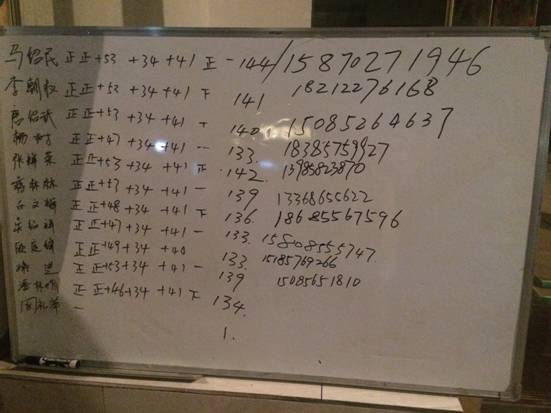 马绍民 正正+53 +34 +41 正 -144/15870271946
李朝权 正正+52 +34 +41 下 141 18212276168
正正+53 +34 +41 140 15085264637
正正+47 +34 +41 一 133 18385759927
张祥荣 正正+53 +34 +41 正 142 13985823870
正正+53 +34 +41 一 139 13368655622
正正+48 +34 +41 下 136 18685567596
正正+47 +34 +41 一 133 15808555747
正正+49 +34 +40 133 15185769266
正正+53 +34 +41 一 139 15085651810
正正+46 +34 +41 下 134
一 1.